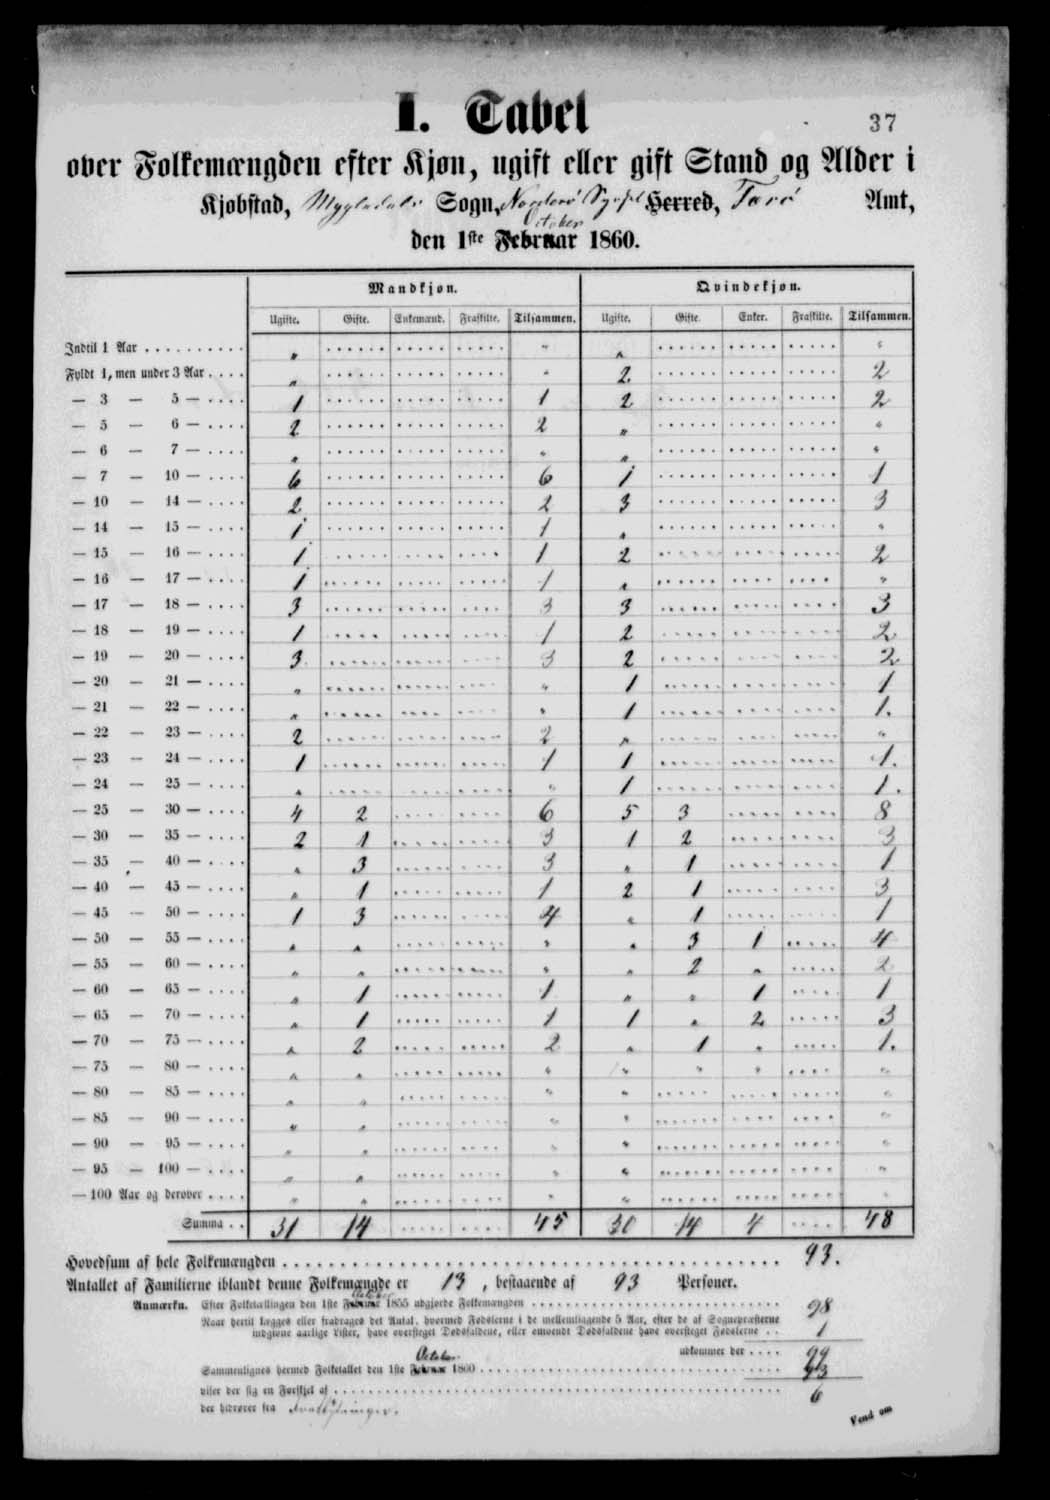 37
I. Tabel
over Folkemængden efter Kjøn, ugift eller gift Stand og Alder i
Kjøbstad, Myggledals Sogn, Norderø Syssel Herred, Færø Amt,
October
den 1ste Februar 1860.
Mandkjøn. Qvindekjøn.
Ugifte. Gifte. Enkemænd. Fraskilte. Tilsammen. Ugifte. Gifte. Enker. Fraskilte. Tilsammen.
Indtil 1 Aar . . . . . . . . . . " " " "
Fyldt 1, men under 3 Aar . . . . " " 2 2
— 3 — 5 — . . . . 1 1 2 2
— 5 — 6 — . . . . 2 2 " "
— 6 — 7 — . . . . " " " "
— 7 — 10 — . . . . 6 6 1 1
— 10 — 14 — . . . . 2 2 3 3
— 14 — 15 — . . . . 1 1 " "
— 15 — 16 — . . . . 1 1 2 2
— 16 — 17 — . . . . 1 1 " "
— 17 — 18 — . . . . 3 3 3 3
— 18 — 19 — . . . . 1 1 2 2
— 19 — 20 — . . . . 3 3 2 2
— 20 — 21 — . . . . " " 1 1
— 21 — 22 — . . . . " " 1 1.
— 22 — 23 — . . . . 2 2 " "
— 23 — 24 — . . . . 1 1 1 1.
— 24 — 25 — . . . . " " 1 1.
— 25 — 30 — . . . . 4 2 6 5 3 8
— 30 — 35 — . . . . 2 1 3 1 2 3
— 35 — 40 — . . . . " 3 3 " 1 1
— 40 — 45 — . . . . " 1 1 2 1 3
— 45 — 50 — . . . . 1 3 4 " 1 1
— 50 — 55 — . . . . " " " " 3 1 4
— 55 — 60 — . . . . " " " " 2 " 2
— 60 — 65 — . . . . " 1 1 " " 1 1
— 65 — 70 — . . . . " 1 1 1 " 2 3
— 70 — 75 — . . . . " 2 2 " 1 " 1.
— 75 — 80 — . . . . " " " " " " "
— 80 — 85 — . . . . " " " " "
— 85 — 90 — . . . . " " " " "
— 90 — 95 — . . . . " " " " "
— 95 — 100 — . . . . " " " " "
— 100 Aar og derover . . . . " " " " "
Summa . . 31 14 45 30 14 4 48
Hovedsum af hele Folkemængden . . . . 93.
Antallet af Familierne iblandt denne Folkemængde er 13, bestaaende af 93 Personer.
October
Anmærkn. Efter Folketællingen den 1ste Februar 1855 udgjorde Folkemængden . . . . 98
Naar hertil lægges eller fradrages det Antal, hvormed Fødslerne i de mellemliggende 5 Aar, efter de af Sognepræsterne
indgivne aarlige Lister, have oversteget Dødsfaldene, eller omvendt Dødsfaldene have oversteget Fødslerne . . 1
udkommer der . . . . 99
October
Sammenlignes hermed Folketallet den 1ste Februar 1860 . . . . 93
viser der sig en Forskjel af . . . . 6
der hidrører fra
Vend om